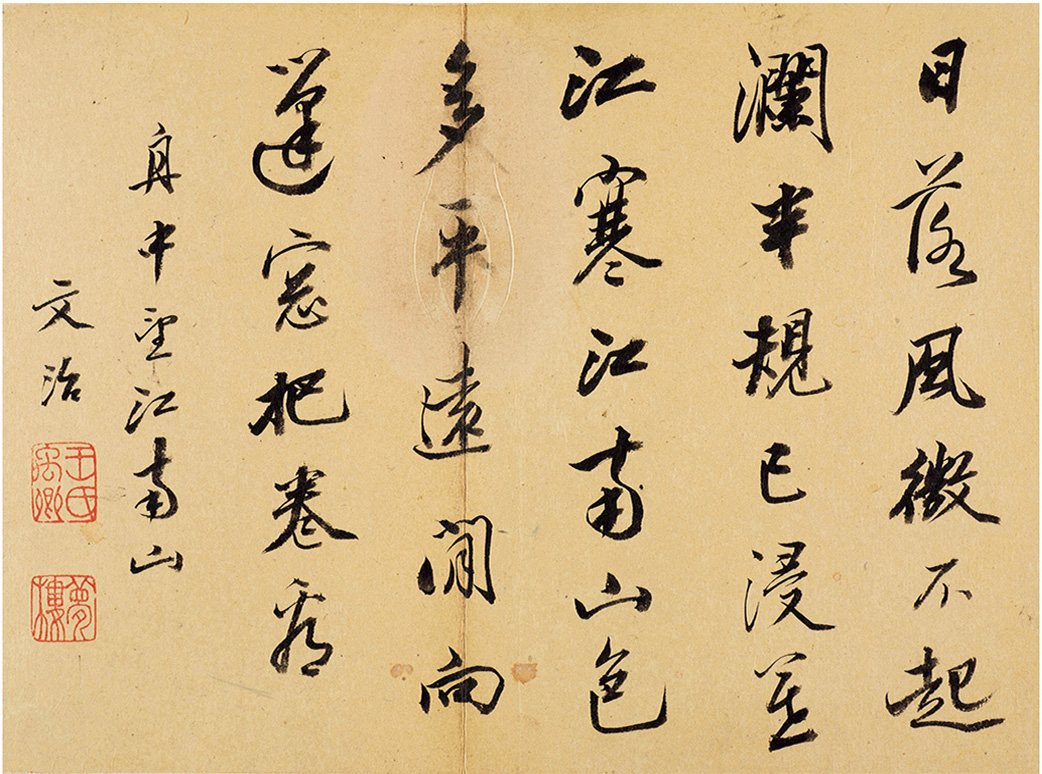 日落風微不起
瀾半規已浸
江寒江南山色
多平遠閒向
篷窓把卷看
舟中望江南山
文治
王氏禹卿
夢樓